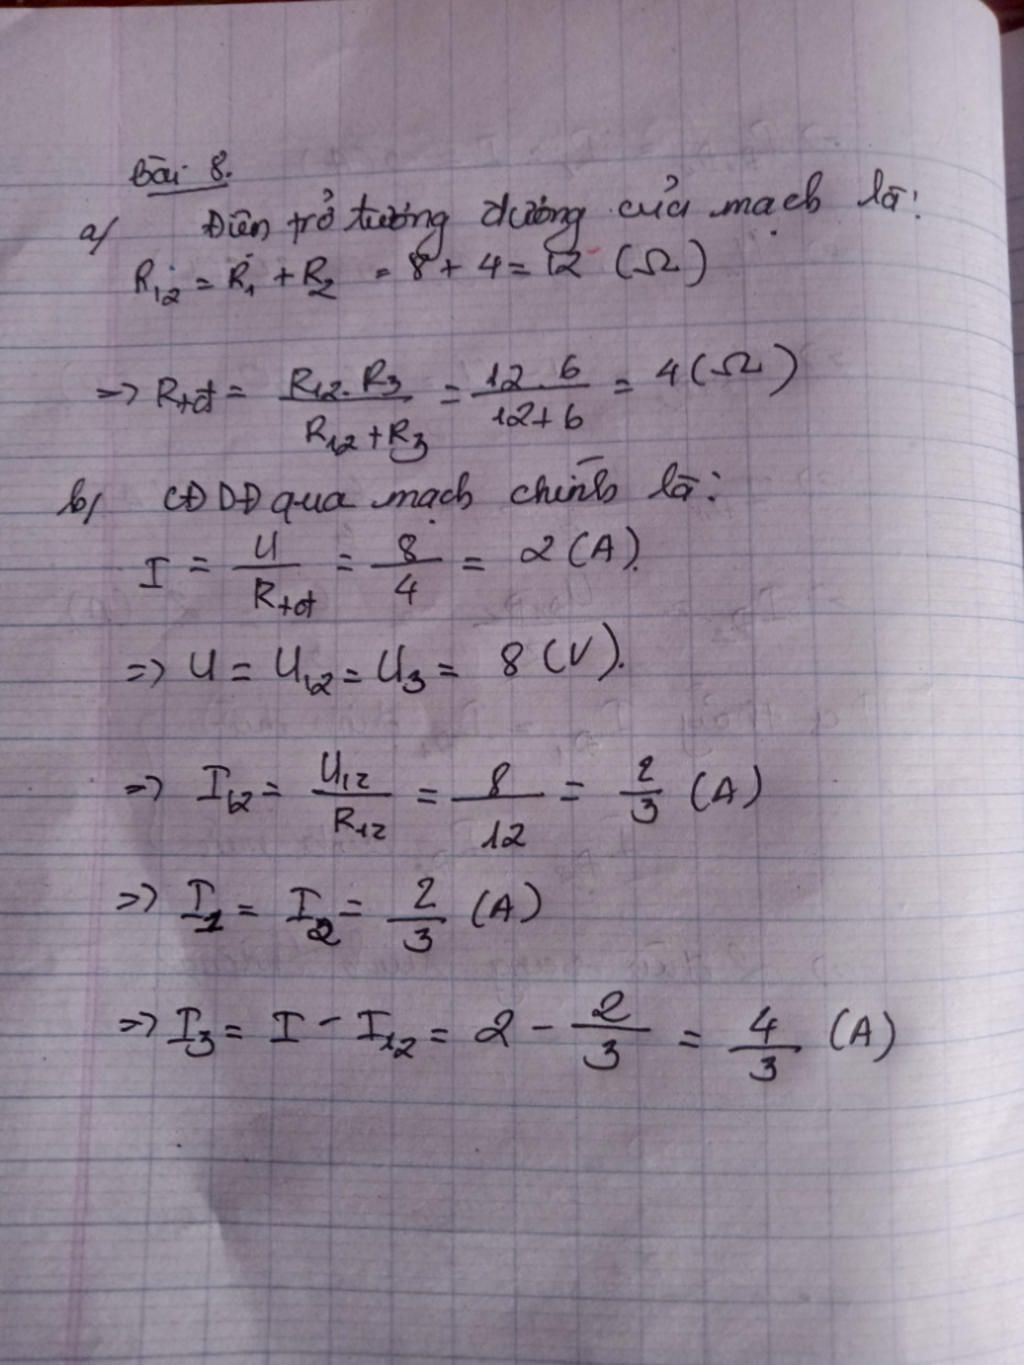 Bài 8.
a/ Điện trở tương đương của mạch là:
R₁₂ = R₁ + R₂ = 8 + 4 = 12 (Ω)
=> Rtđ = (R₁₂ . R₃)/(R₁₂ + R₃) = (12 . 6)/(12 + 6) = 4 (Ω)
b/ CĐDĐ qua mạch chính là:
I = U/Rtđ = 8/4 = 2 (A).
=> U = U₁₂ = U₃ = 8 (V).
=> I₁₂ = U₁₂/R₁₂ = 8/12 = 2/3 (A)
=> I₁ = I₂ = 2/3 (A)
=> I₃ = I - I₁₂ = 2 - 2/3 = 4/3 (A)